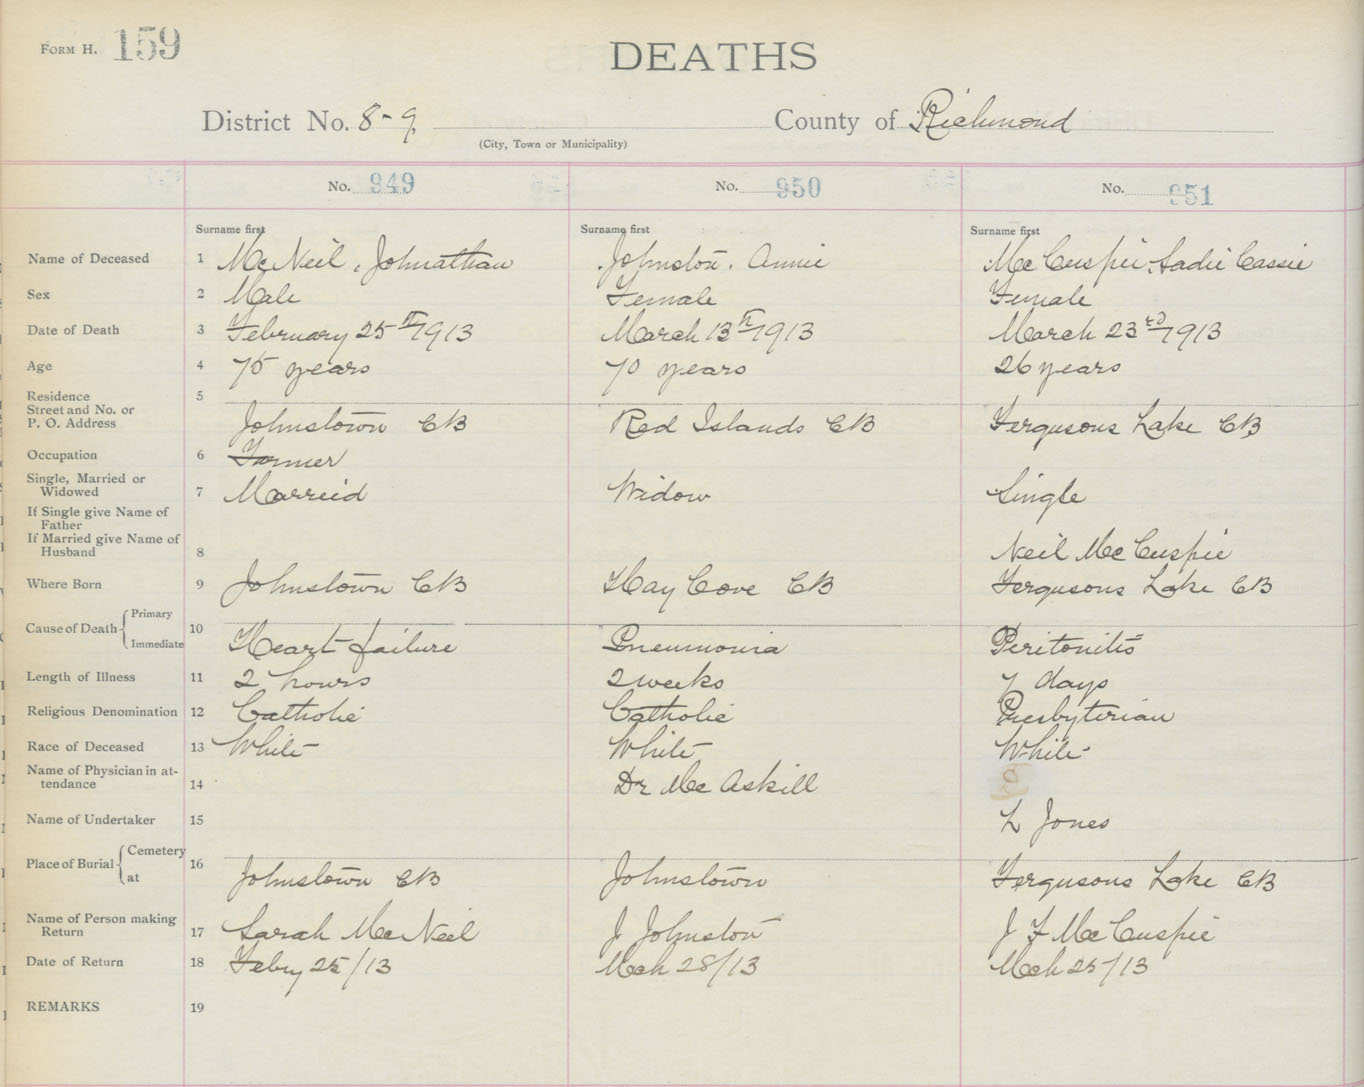 FORM H. 159
DEATHS
District No. 8-9 County of Richmond
(City, Town or Municipality)
No. 949 No. 950 No. 951
Surname first Surname first Surname first
Name of Deceased 1 McNeil, Johnathan Johnston, Annie McCuspie, Sadie Cassie
Sex 2 Male Female Female
Date of Death 3 February 25th 1913 March 13th 1913 March 23rd 1913
Age 4 75 years 70 years 26 years
Residence 5
Street and No. or
P. O. Address Johnstown CB Red Islands CB Fergusons Lake CB
Occupation 6 Farmer
Single, Married or
Widowed 7 Marreid Widow Single
If Single give Name of
Father
If Married give Name of
Husband 8 Neil McCuspie
Where Born 9 Johnstown CB Hay Cove CB Fergusons Lake CB
Primary
Cause of Death 10 Heart failure Pneumonia Peritonitis
Immediate
Length of Illness 11 2 hours 2 weeks 7 days
Religious Denomination 12 Catholic Catholic Presbyterian
Race of Deceased 13 White White White
Name of Physician in at-
tendance 14 Dr McAskill
Name of Undertaker 15 L Jones
Cemetery
Place of Burial 16
at Johnstown CB Johnstown Fergusons Lake CB
Name of Person making
Return 17 Sarah McNeil J Johnston J F McCuspie
Date of Return 18 Febry 25/13 Mch 28/13 Mch 25/13
REMARKS 19